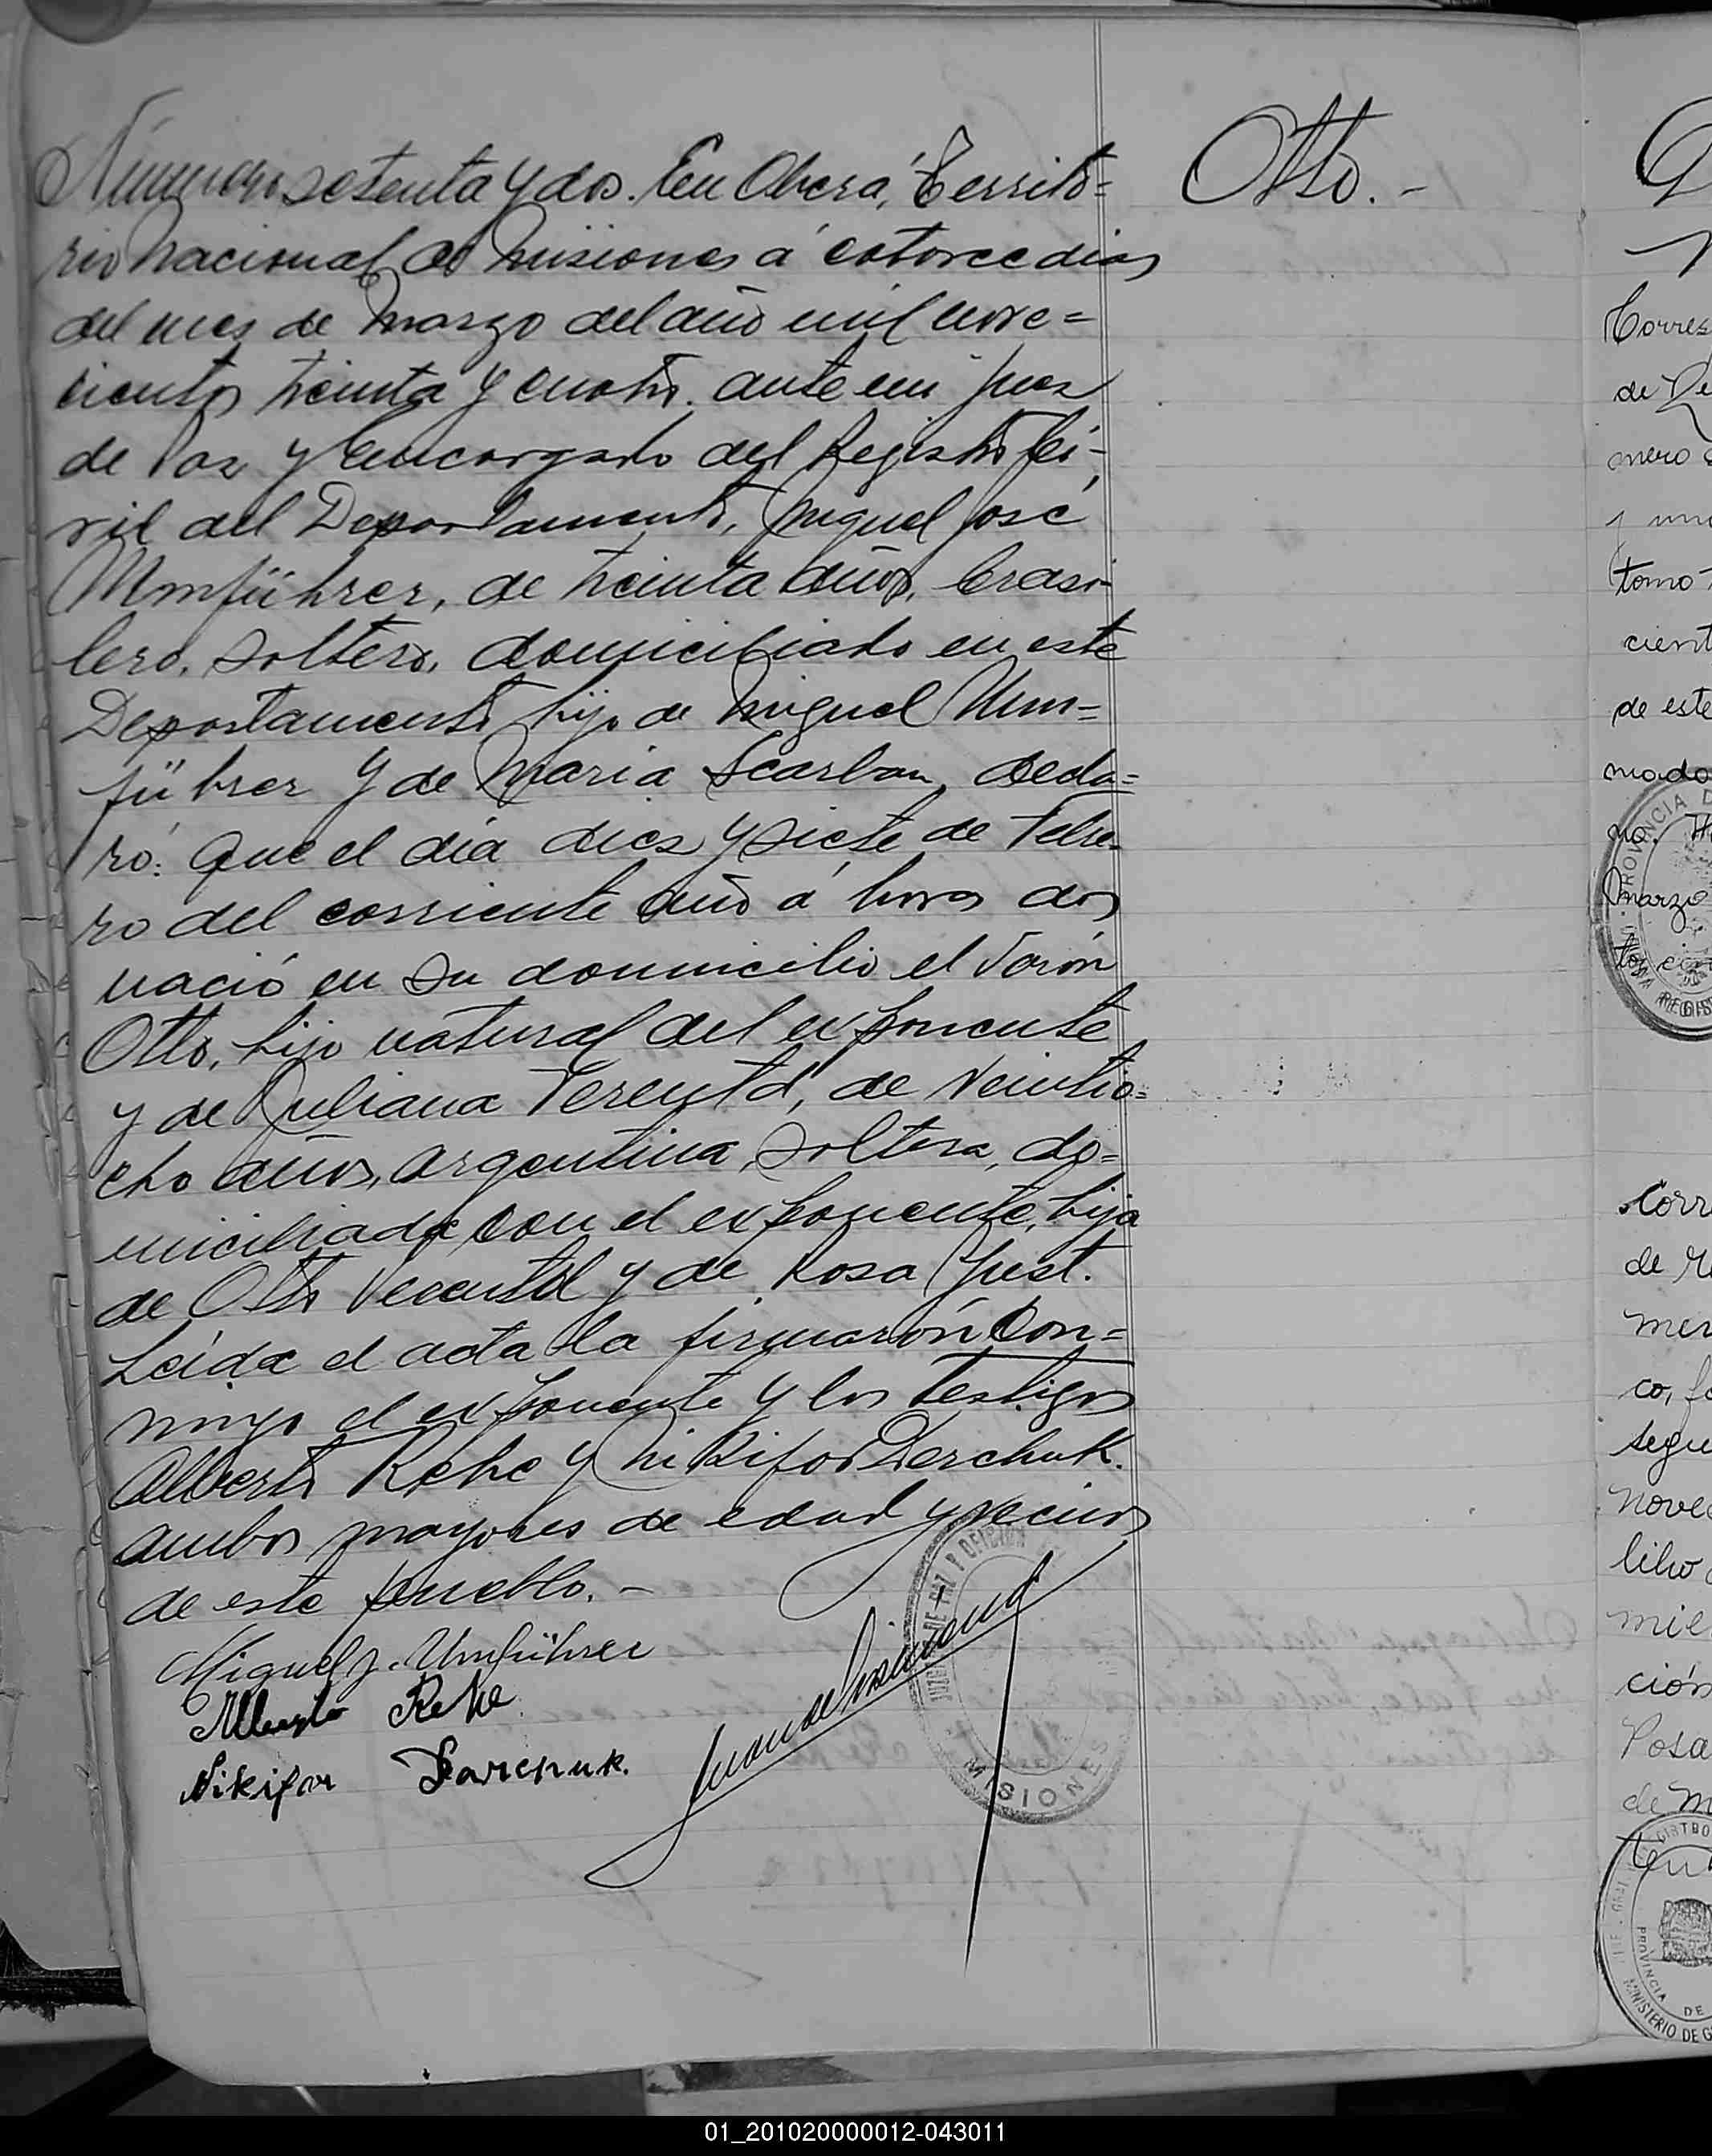 Número setenta y dos. En Oberá, Territo=
rio Nacional de Misiones á catorce dias
del mes de Marzo del año mil nove=
cientos treinta y cuatro. ante mi Juez
de Paz y Encargado del Registro Ci-
vil del Departamento, Miguel José
Umführer, de treinta años, brasi-
lero, soltero, domiciliado en este
Departamento hijo de Miguel Um=
führer y de Maria Scarban, decla=
ró: Que el día diez y siete de Febre-
ro del corriente año á horas dos
nació en su domicilio el varón
Otto, hijo natural del exponente
y de Juliana Ferentd, de veintio=
cho años, argentina, soltera, do=
miciliada con el exponente, hija
de Otto y de Rosa Just.
Leída el acta la firmarón con=
migo el exponente y los testigos
Alberto Rehe y Nikifor Derchuk.
ambos mayores de edad y vecinos
de este pueblo.-
Miguel J. Umführer
Alberto Rehe
Nikifor Darchuk.
MISIONES
Otto.-
Corres
de
mero
y
tomo
cient
de este
mado
no.
marzo
PROVINCIA D
Corr
de
mer
co, fa
segu
nove
libro
mie
ción
Posa
de M
PROVINCIA DE
MINISTERIO DE G
01_201020000012-043011